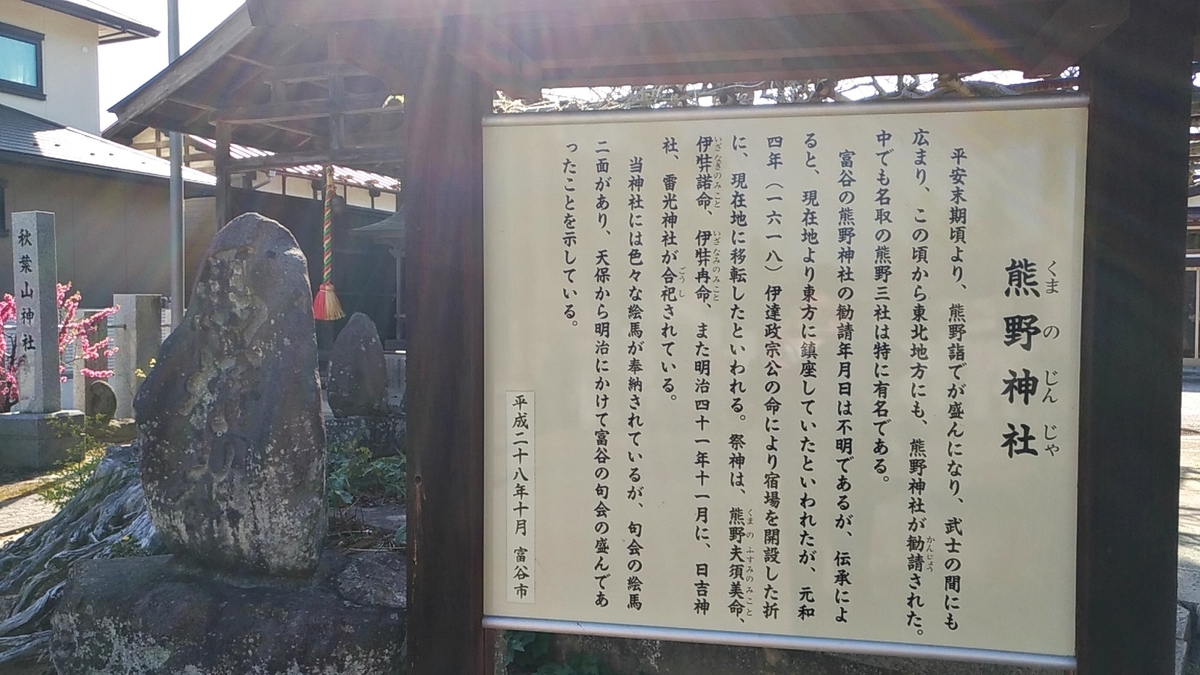 熊野神社
くまのじんじゃ
平安末期頃より、熊野詣でが盛んになり、武士の間にも
広まり、この頃から東北地方にも、熊野神社が勧請された。
かんじょう
中でも名取の熊野三社は特に有名である。
富谷の熊野神社の勧請年月日は不明であるが、伝承によ
ると、現在地より東方に鎮座していたといわれたが、元和
四年（一六一八）伊達政宗公の命により宿場を開設した折
に、現在地に移転したといわれる。祭神は、熊野夫須美命、
くまのふすみのみこと
伊弉諾命、伊弉冉命、また明治四十一年十一月に、日吉神
いざなぎのみこと
いざなみのみこと
社、雷光神社が合祀されている。
ごうし
当神社には色々な絵馬が奉納されているが、句会の絵馬
二面があり、天保から明治にかけて富谷の句会の盛んであ
ったことを示している。
平成二十八年十月 富谷市
秋葉山神社